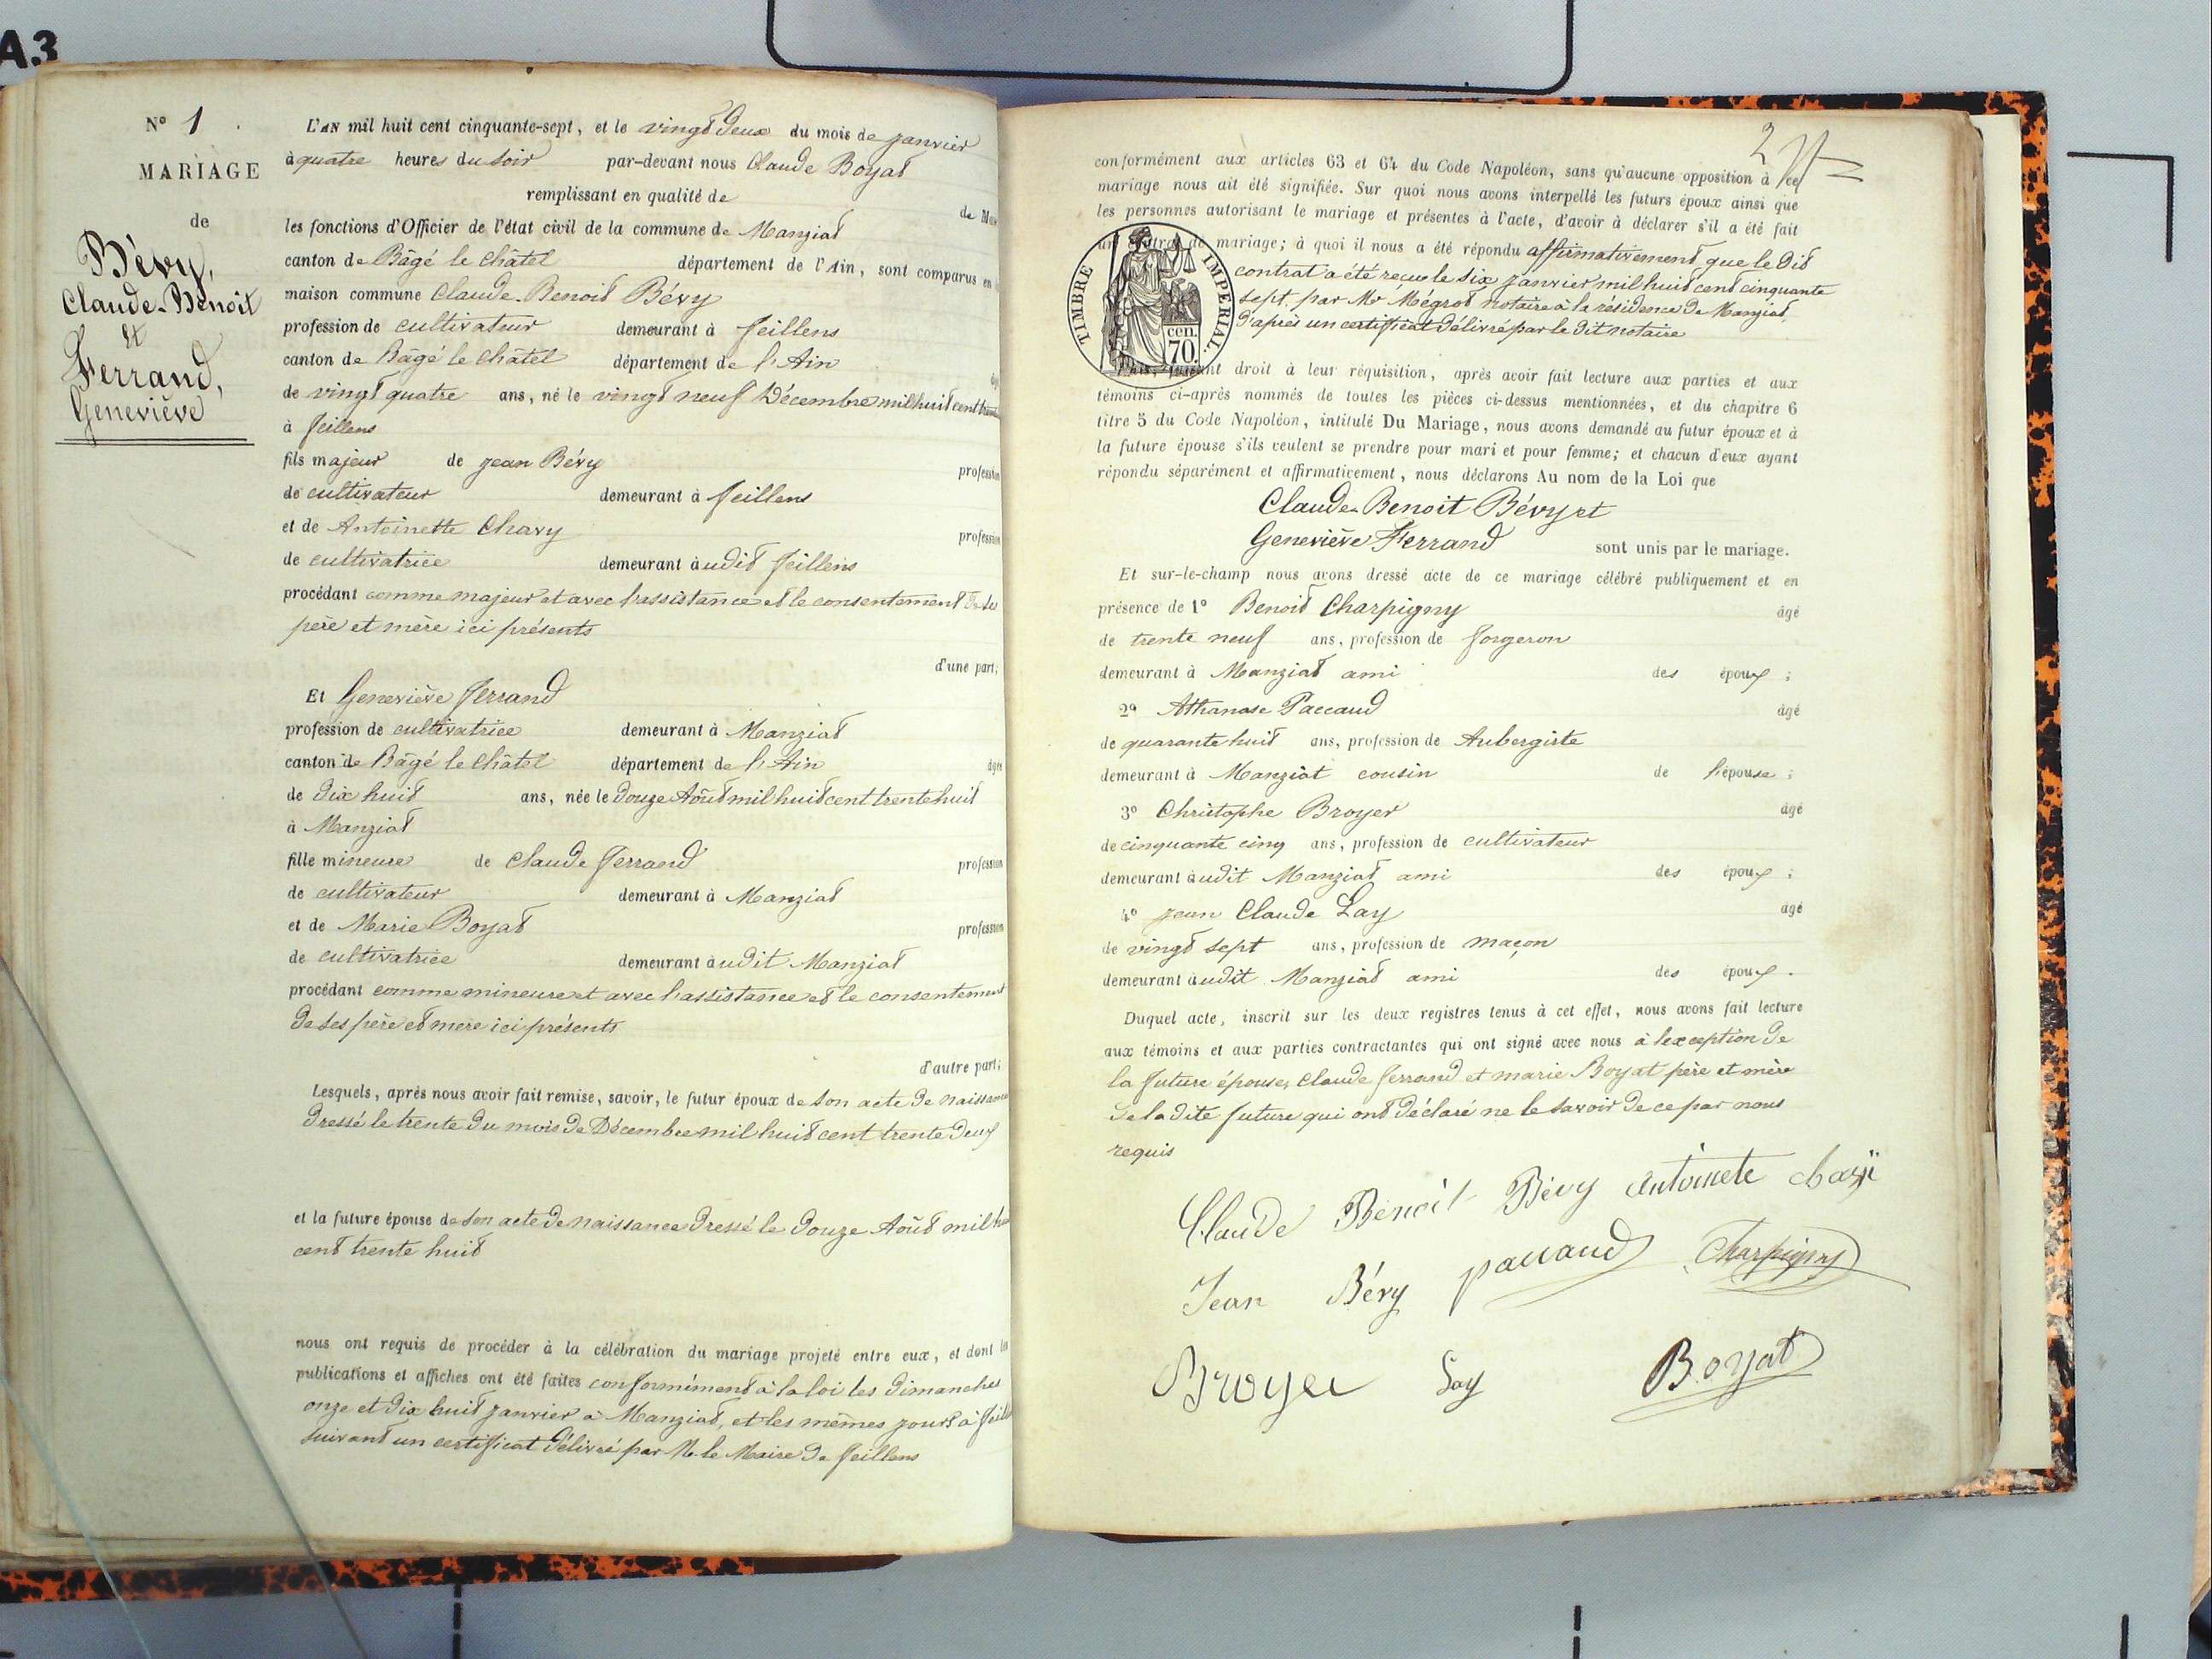 A3
N° 1
MARIAGE
de
Bévy,
Claude-Benoît
Et
Ferrand,
Geneviève
L'AN mil huit cent cinquante-sept, et le vingt deux du mois de janvier
à quatre heures du soir par-devant nous Claude Boyat
remplissant en qualité de
les fonctions d'Officier de l'état civil de la commune de Manziat
canton de Bâgé le Châtel département de l'Ain, sont comparus en
maison commune Claude-Benoit Bévy
profession de cultivateur demeurant à feillens
canton de Bâgé le Châtel département de l'Ain
de vingt quatre ans, né le vingt neuf Décembre mil huit cent
à feillens
fils majeur de jean Bévy profession
de cultivateur demeurant à feillens
et de Antoinette Chavy profession
de cultivatrice demeurant audit feillens
procédant comme majeur et avec l'assistance et le consentement de ses
père et mère ici présents
d'une part;
Et Geneviève ferrand
profession de cultivatrice demeurant à Manziat
canton de Bâgé le Châtel département de l'Ain âgée
de dix huit ans, née le douze Août mil huit cent trente huit
à Manziat
fille mineure de claude ferrand profession
de cultivateur demeurant à Manziat
et de Marie Boyat profession
de cultivatrice demeurant audit Manziat
procédant comme mineure et avec l'assistance et le consentement
de ses père et mere ici présents
d'autre part;
Lesquels, après nous avoir fait remise, savoir, le futur époux de son acte de naissance
dressé le trente du mois de Décembre mil huit cent trente deux
et la future épouse de son acte de naissance dressé le douze Août mil
cent trente huit
nous ont requis de procéder à la célébration du mariage projeté entre eux, et dont les
publications et affiches ont été faites conformément à la loi les dimanches
onze et dix huit janvier à Manziat, et les mêmes jours à
suivant un certificat délivré par M. le Maire de feillens
2
conformément aux articles 63 et 64 du Code Napoléon, sans qu'aucune opposition à ce
mariage nous ait été signifiée. Sur quoi nous avons interpellé les futurs époux ainsi que
les personnes autorisant le mariage et présentes à l'acte, d'avoir à déclarer s'il a été fait
un contrat de mariage; à quoi il nous a été répondu affirmativement que le dit
contrat a été reçu le six janvier mil huit cent cinquante
sept, par Mr Mégrot notaire à la résidence de Manziat,
d'après un certificat délivré par le dit notaire
TIMBRE IMPERIAL.
cen.
70.
Puis, faisant droit à leur réquisition, après avoir fait lecture aux parties et aux
témoins ci-après nommés de toutes les pièces ci-dessus mentionnées, et du chapitre 6
titre 5 du Code Napoléon, intitulé Du Mariage, nous avons demandé au futur époux et à
la future épouse s'ils veulent se prendre pour mari et pour femme; et chacun d'eux ayant
répondu séparément et affirmativement, nous déclarons Au nom de la Loi que
Claude-Benoit Bévy et
Geneviève Ferrand sont unis par le mariage.
Et sur-le-champ nous avons dressé acte de ce mariage célébré publiquement et en
présence de 1° Benoit Charpigny âgé
de trente neuf ans, profession de forgeron
demeurant à Manziat ami des époux ;
2° Athanase Paccaud âgé
de quarante huit ans, profession de Aubergiste
demeurant à Manziat cousin de l'épouse ;
3° Christophe Broyer âgé
de cinquante cinq ans, profession de cultivateur
demeurant audit Manziat ami des époux ;
4° jean Claude Lay âgé
de vingt sept ans, profession de maçon
demeurant audit Manziat ami des époux .
Duquel acte, inscrit sur les deux registres tenus à cet effet, nous avons fait lecture
aux témoins et aux parties contractantes qui ont signé avec nous à l'exception de
la future épouse, Claude ferrand et marie Boyat père et mère
de la dite future qui ont déclaré ne le savoir de ce par nous
requis
Claude Benoit Bévy antoinete chavÿ
Jean Béry paccaud Charpigny
Broyer Lay Boyat